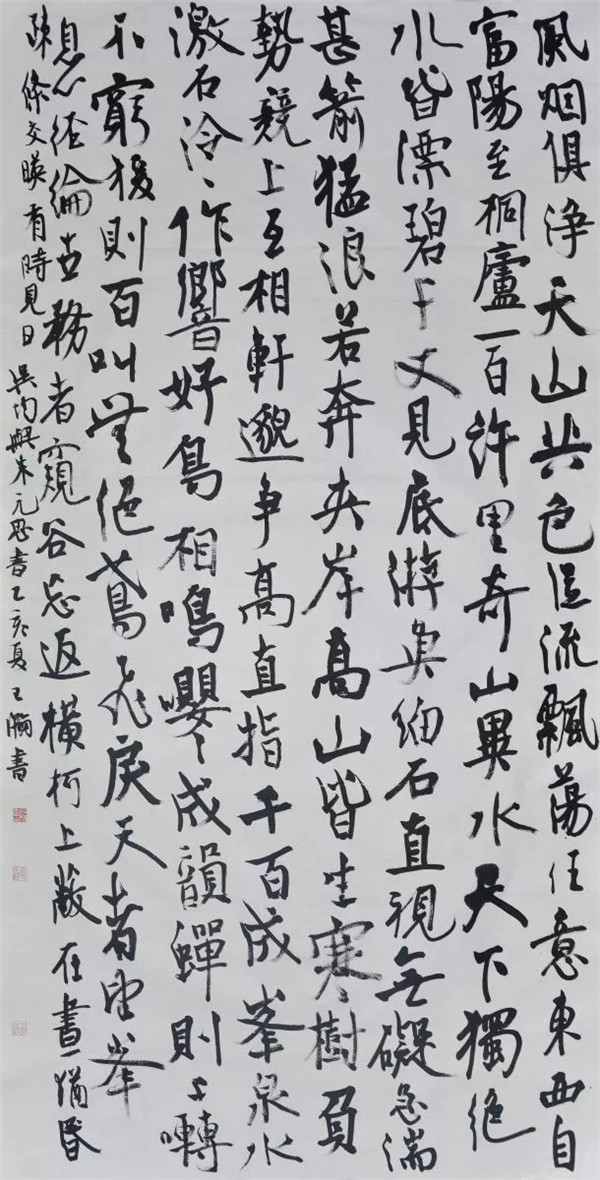 風烟俱浄天山共色從流飄蕩任意東西自
富陽至桐廬一百許里奇山異水天下獨絶
水皆漂碧千丈見底游魚細石直視無礙急湍
甚箭猛浪若奔夾岸高山皆生寒樹負
勢競上互相軒邈争高直指千百成峯泉水
激石泠〻作響好鳥相鳴嚶〻成韻蟬則千囀
不窮猿則百叫無絶鳶飛戾天者望峯
息心經綸世務者窺谷忘返橫柯上蔽在晝猶昏
疎條交暎有時見日 吳均與朱元思書乙亥夏 書